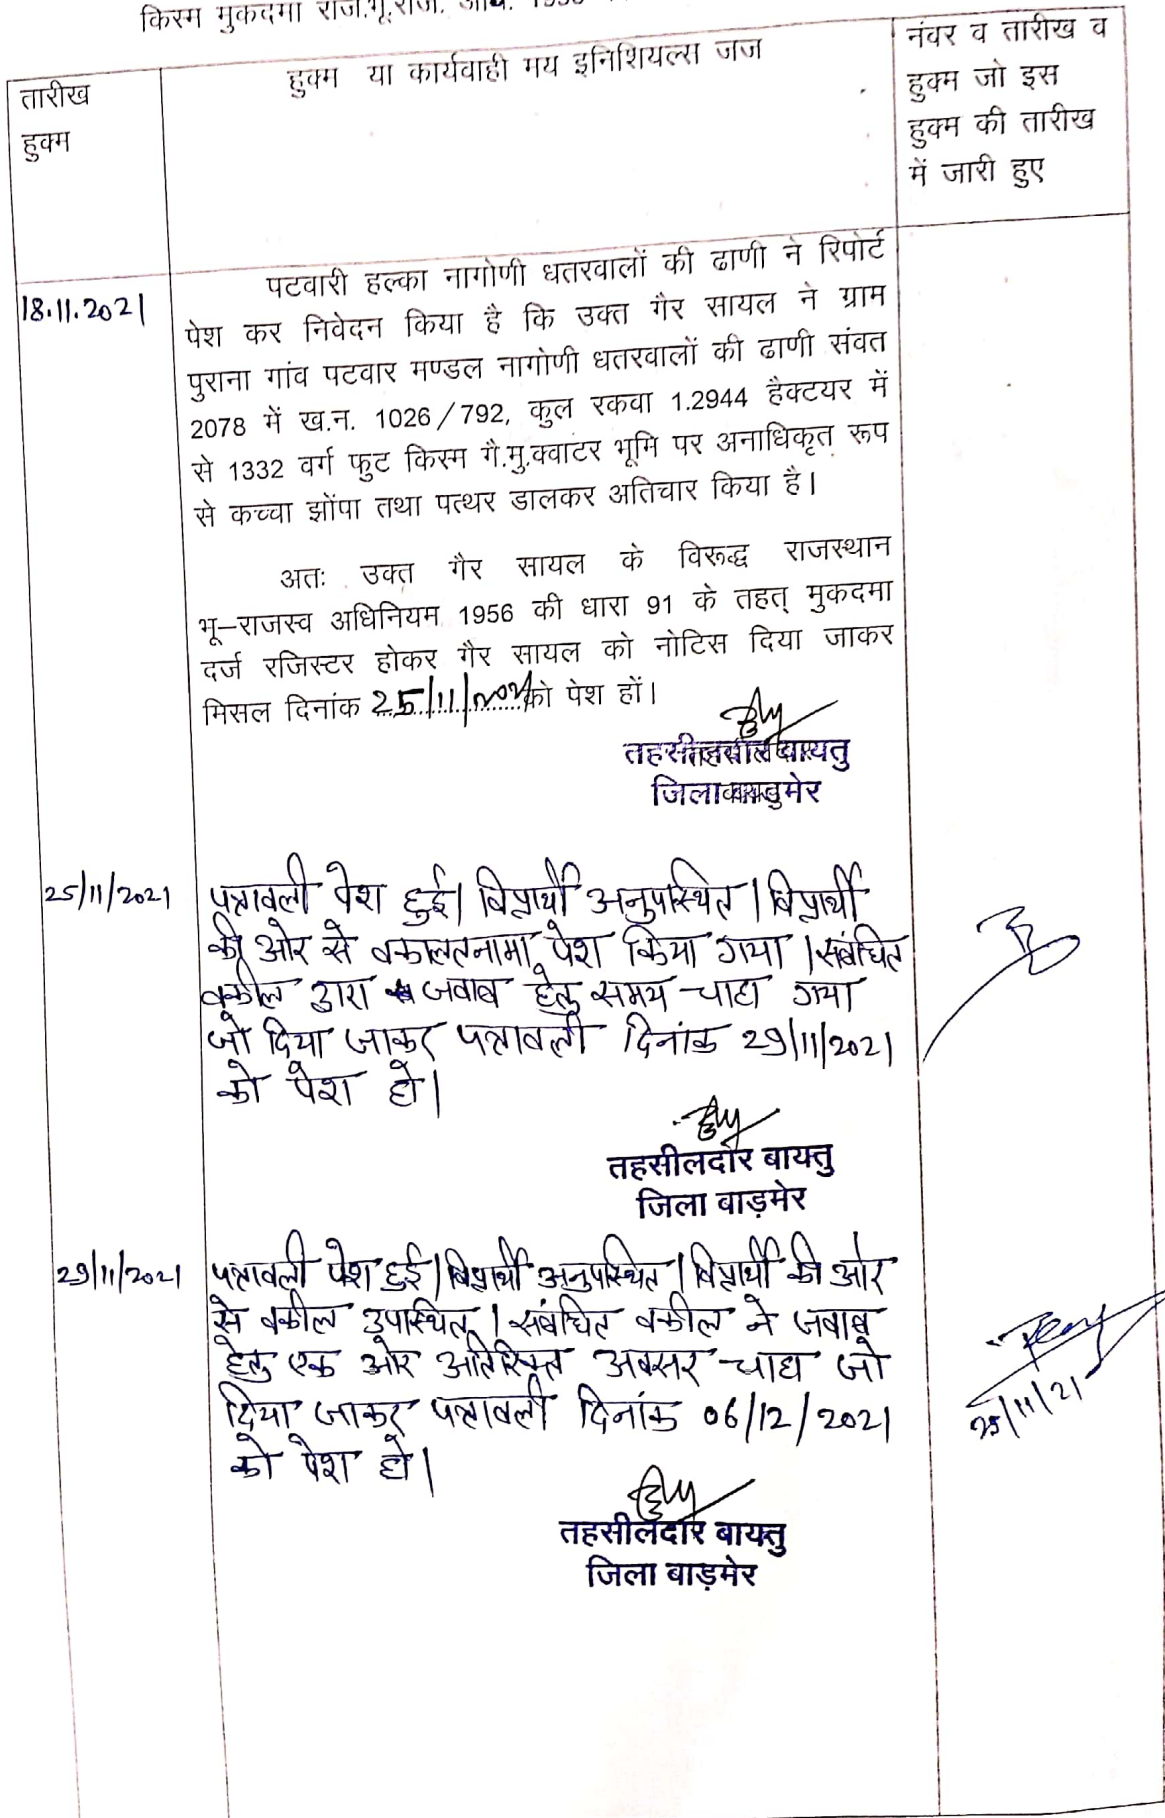 किस्म मुकदमा राज.भू.राज. अधि. 1956
तारीख
हुक्म
हुक्म या कार्यवाही मय इनिशियल्स जज
नंवर व तारीख व
हुक्म जो इस
हुक्म की तारीख
में जारी हुए
18.11.2021
पटवारी हल्का नागोणी धतरवालों की ढाणी ने रिपोर्ट
पेश कर निवेदन किया है कि उक्त गैर सायल ने ग्राम
पुराना गांव पटवार मण्डल नागोणी धतरवालों की ढाणी संवत
2078 में ख.न. 1026/792, कुल रकवा 1.2944 हैक्टयर में
से 1332 वर्ग फुट किस्म गै.मु.क्वाटर भूमि पर अनाधिकृत रूप
से कच्चा झोंपा तथा पत्थर डालकर अतिचार किया है।
अतः उक्त गैर सायल के विरूद्ध राजस्थान
भू–राजस्व अधिनियम 1956 की धारा 91 के तहत् मुकदमा
दर्ज रजिस्टर होकर गैर सायल को नोटिस दिया जाकर
मिसल दिनांक 25/11/2021 को पेश हों।
बायतु
जिला
25/11/2021
पत्रावली पेश हुई। विप्रार्थी अनुपस्थित। विप्रार्थी
की ओर से वकालतनामा पेश किया गया। संबंधित
वकील द्वारा जवाब हेतु समय चाहा गया
जो दिया जाकर पत्रावली दिनांक 29/11/2021
को पेश हो।
तहसीलदार बायतु
जिला बाड़मेर
29/11/2021
पत्रावली पेश हुई। विप्रार्थी अनुपस्थित। विप्रार्थी की ओर
से वकील उपस्थित। संबंधित वकील ने जवाब
हेतु एक ओर अतिरिक्त अवसर चाहा जो
दिया जाकर पत्रावली दिनांक 06/12/2021
को पेश हो।
29/11/21
तहसीलदार बायतु
जिला बाड़मेर